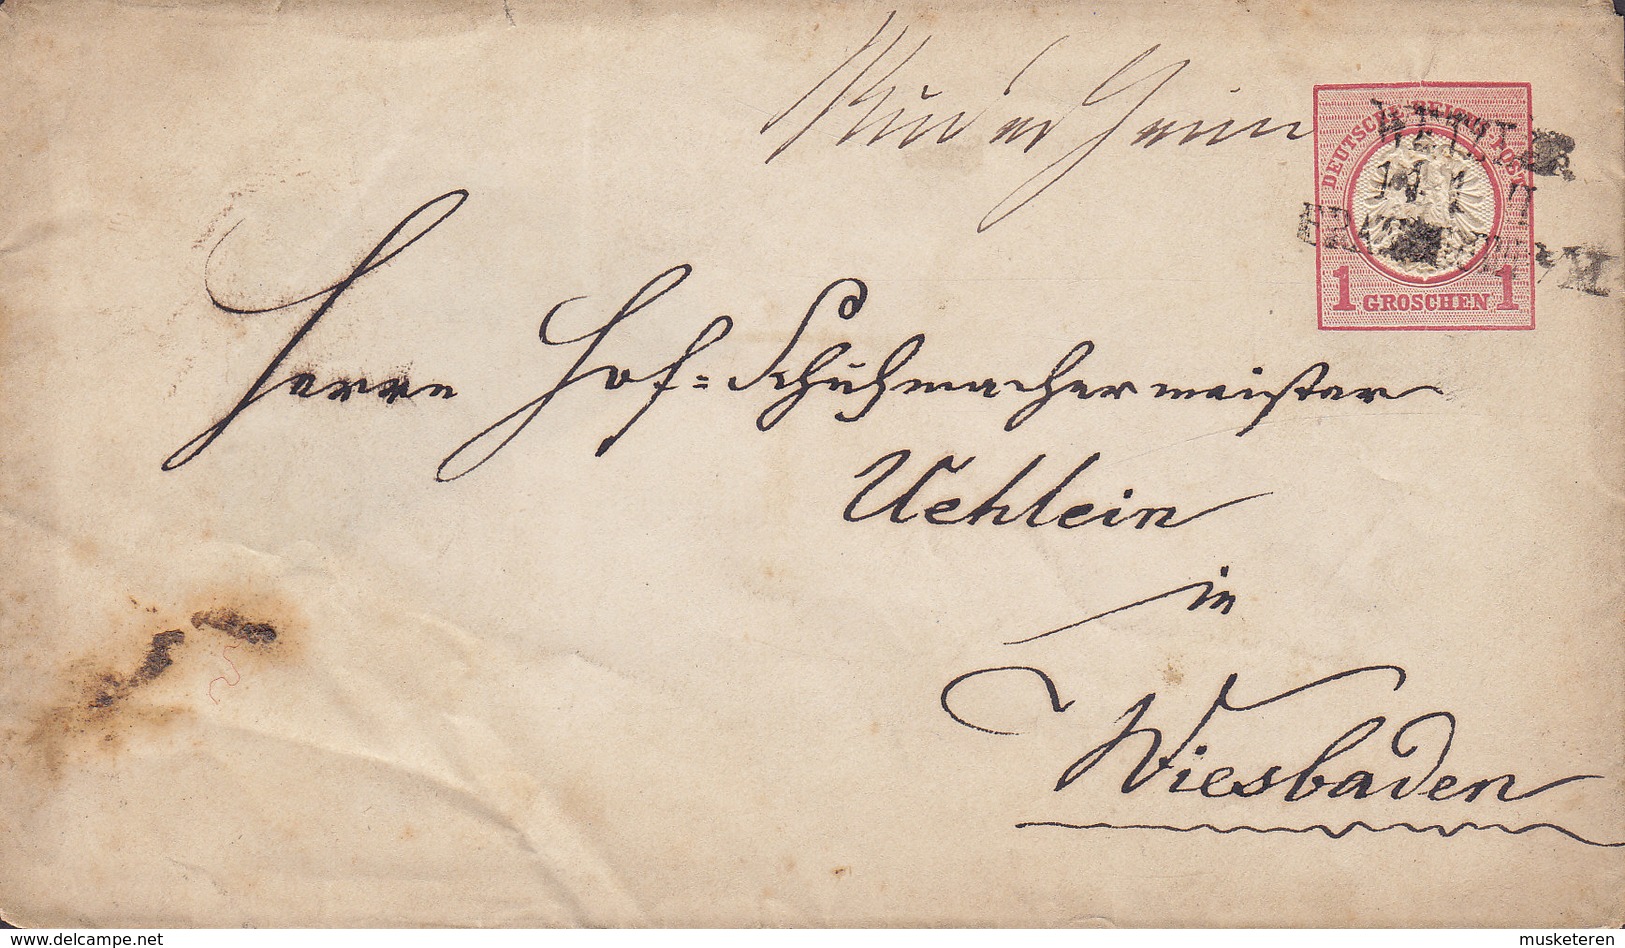 Rüdesheim
DEUTSCHE REICHS POST
1 GROSCHEN 1
Herrn Hof-Schuhmachermeister
Uehlein
in
Wiesbaden
www.delcampe.net
musketeren